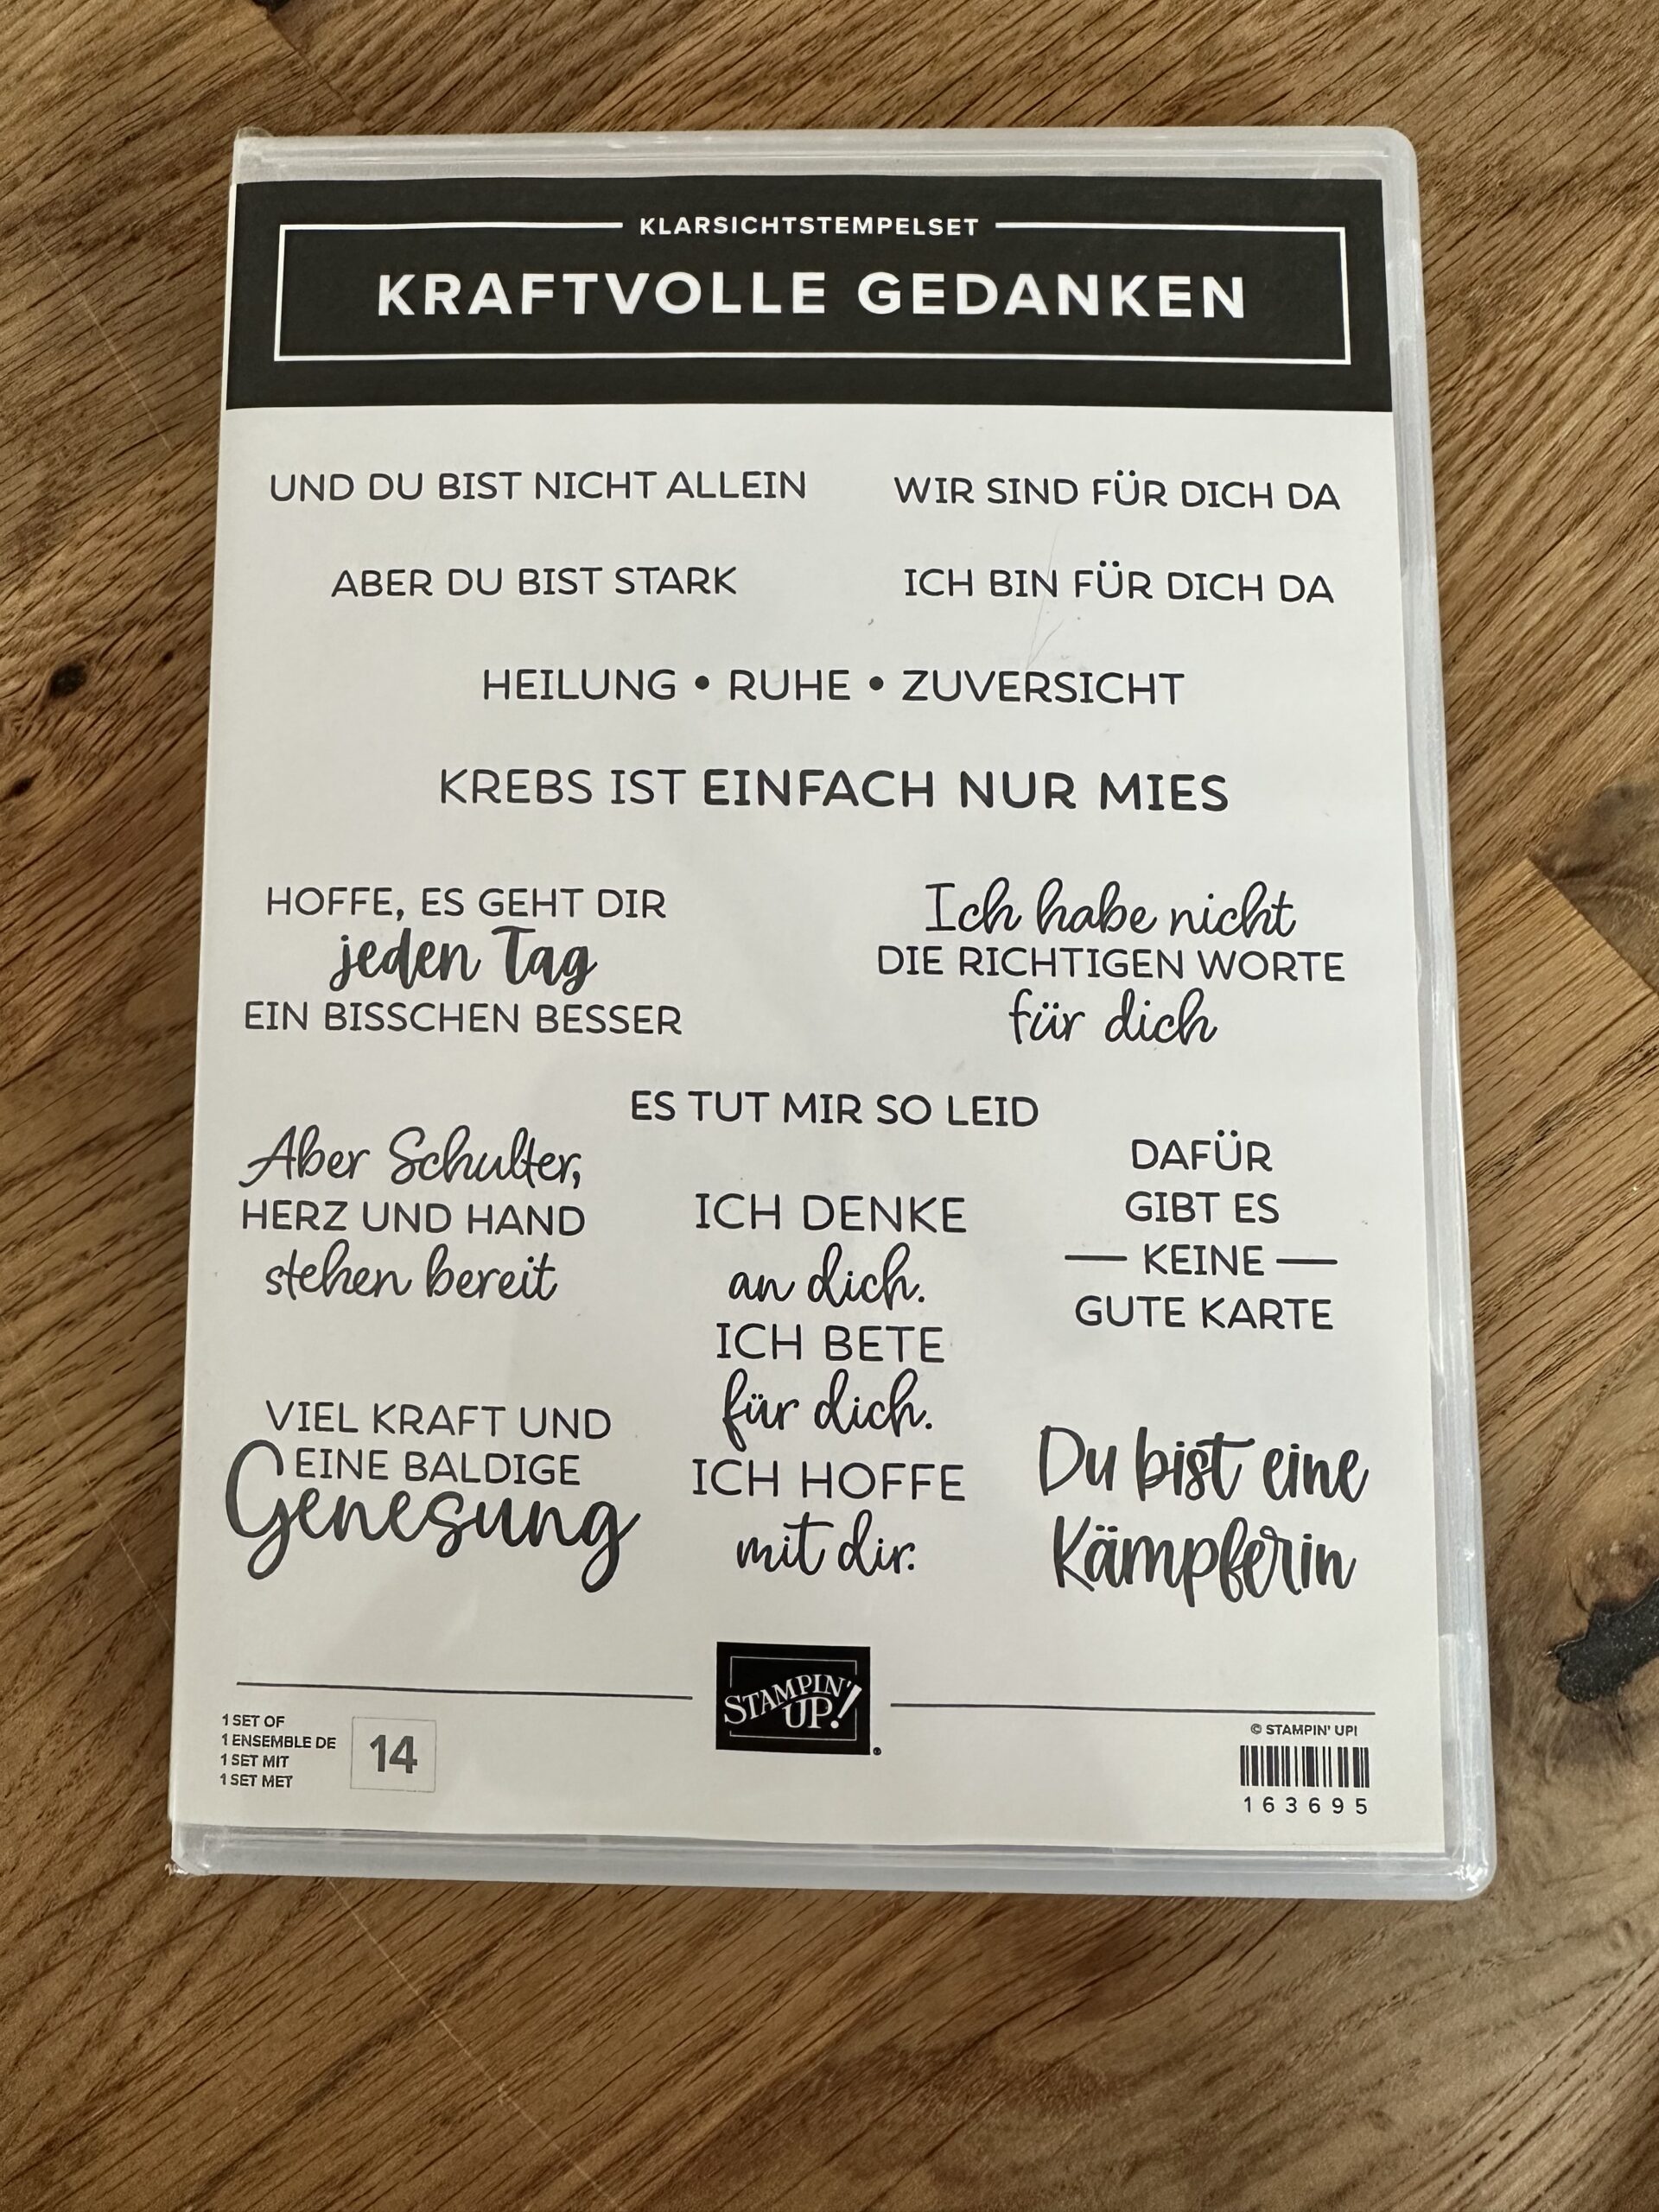 KLARSICHTSTEMPELSET
KRAFTVOLLE GEDANKEN
UND DU BIST NICHT ALLEIN
WIR SIND FÜR DICH DA
ABER DU BIST STARK
ICH BIN FÜR DICH DA
HEILUNG • RUHE • ZUVERSICHT
KREBS IST EINFACH NUR MIES
HOFFE, ES GEHT DIR
jeden Tag
EIN BISSCHEN BESSER
Ich habe nicht
DIE RICHTIGEN WORTE
für dich
ES TUT MIR SO LEID
Aber Schulter,
HERZ UND HAND
stehen bereit
ICH DENKE
an dich.
ICH BETE
für dich.
ICH HOFFE
mit dir.
DAFÜR
GIBT ES
— KEINE —
GUTE KARTE
VIEL KRAFT UND
EINE BALDIGE
Genesung
Du bist eine
Kämpferin
STAMPIN'
UP!
1 SET OF
1 ENSEMBLE DE
1 SET MIT
1 SET MET
14
© STAMPIN' UP!
163695